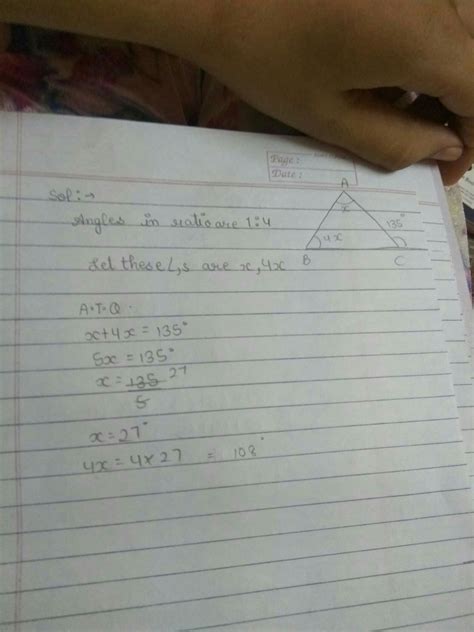 Page :
Date :
Sol :→
Angles in ratio are 1:4
Let these ∠,s are x, 4x
A
x
135°
4x
B
C
A.T.Q.
x+4x = 135°
5x = 135°
x = 135 27
5
x = 27°
4x = 4x 27 = 108°